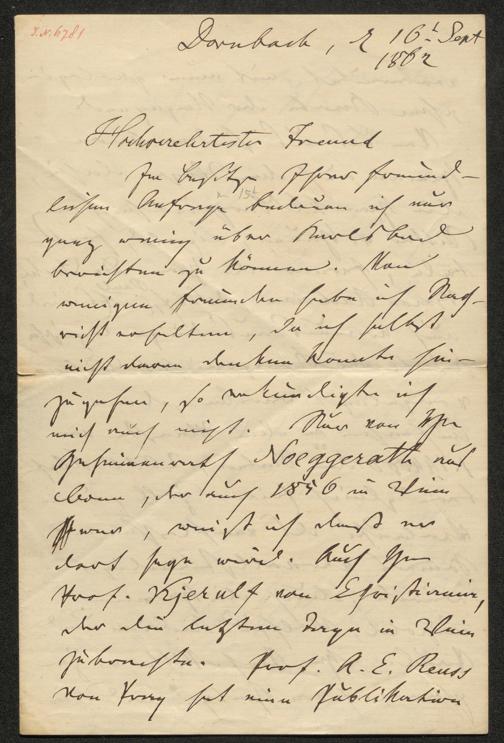 I.N. 6781
Dornbach, d 16t Sept
1862
Hochverehrtester Freund
Im Besitze Ihrer freund-
lichen Anfrage v 15t bedaure ich nur
ganz wenig über Karlsbad
berichten zu können. Von
wenigen Freunden habe ich Nach-
richt erhalten, da ich selbst
nicht daran denken konnte hin-
zugehen, so erkundigte ich
mich auch nicht. Nur von Hrn
Geheimenrath Noeggerath aus
Bonn, der auch 1856 in Wien
war, weiß ich daß er
dort seyn wird. Auch Hrn
Prof. Kjerulf von Christiania,
der die letzten Tage in Wien
zubrachte. Prof. A. E. Reuss
von Prag hat eine Publikation